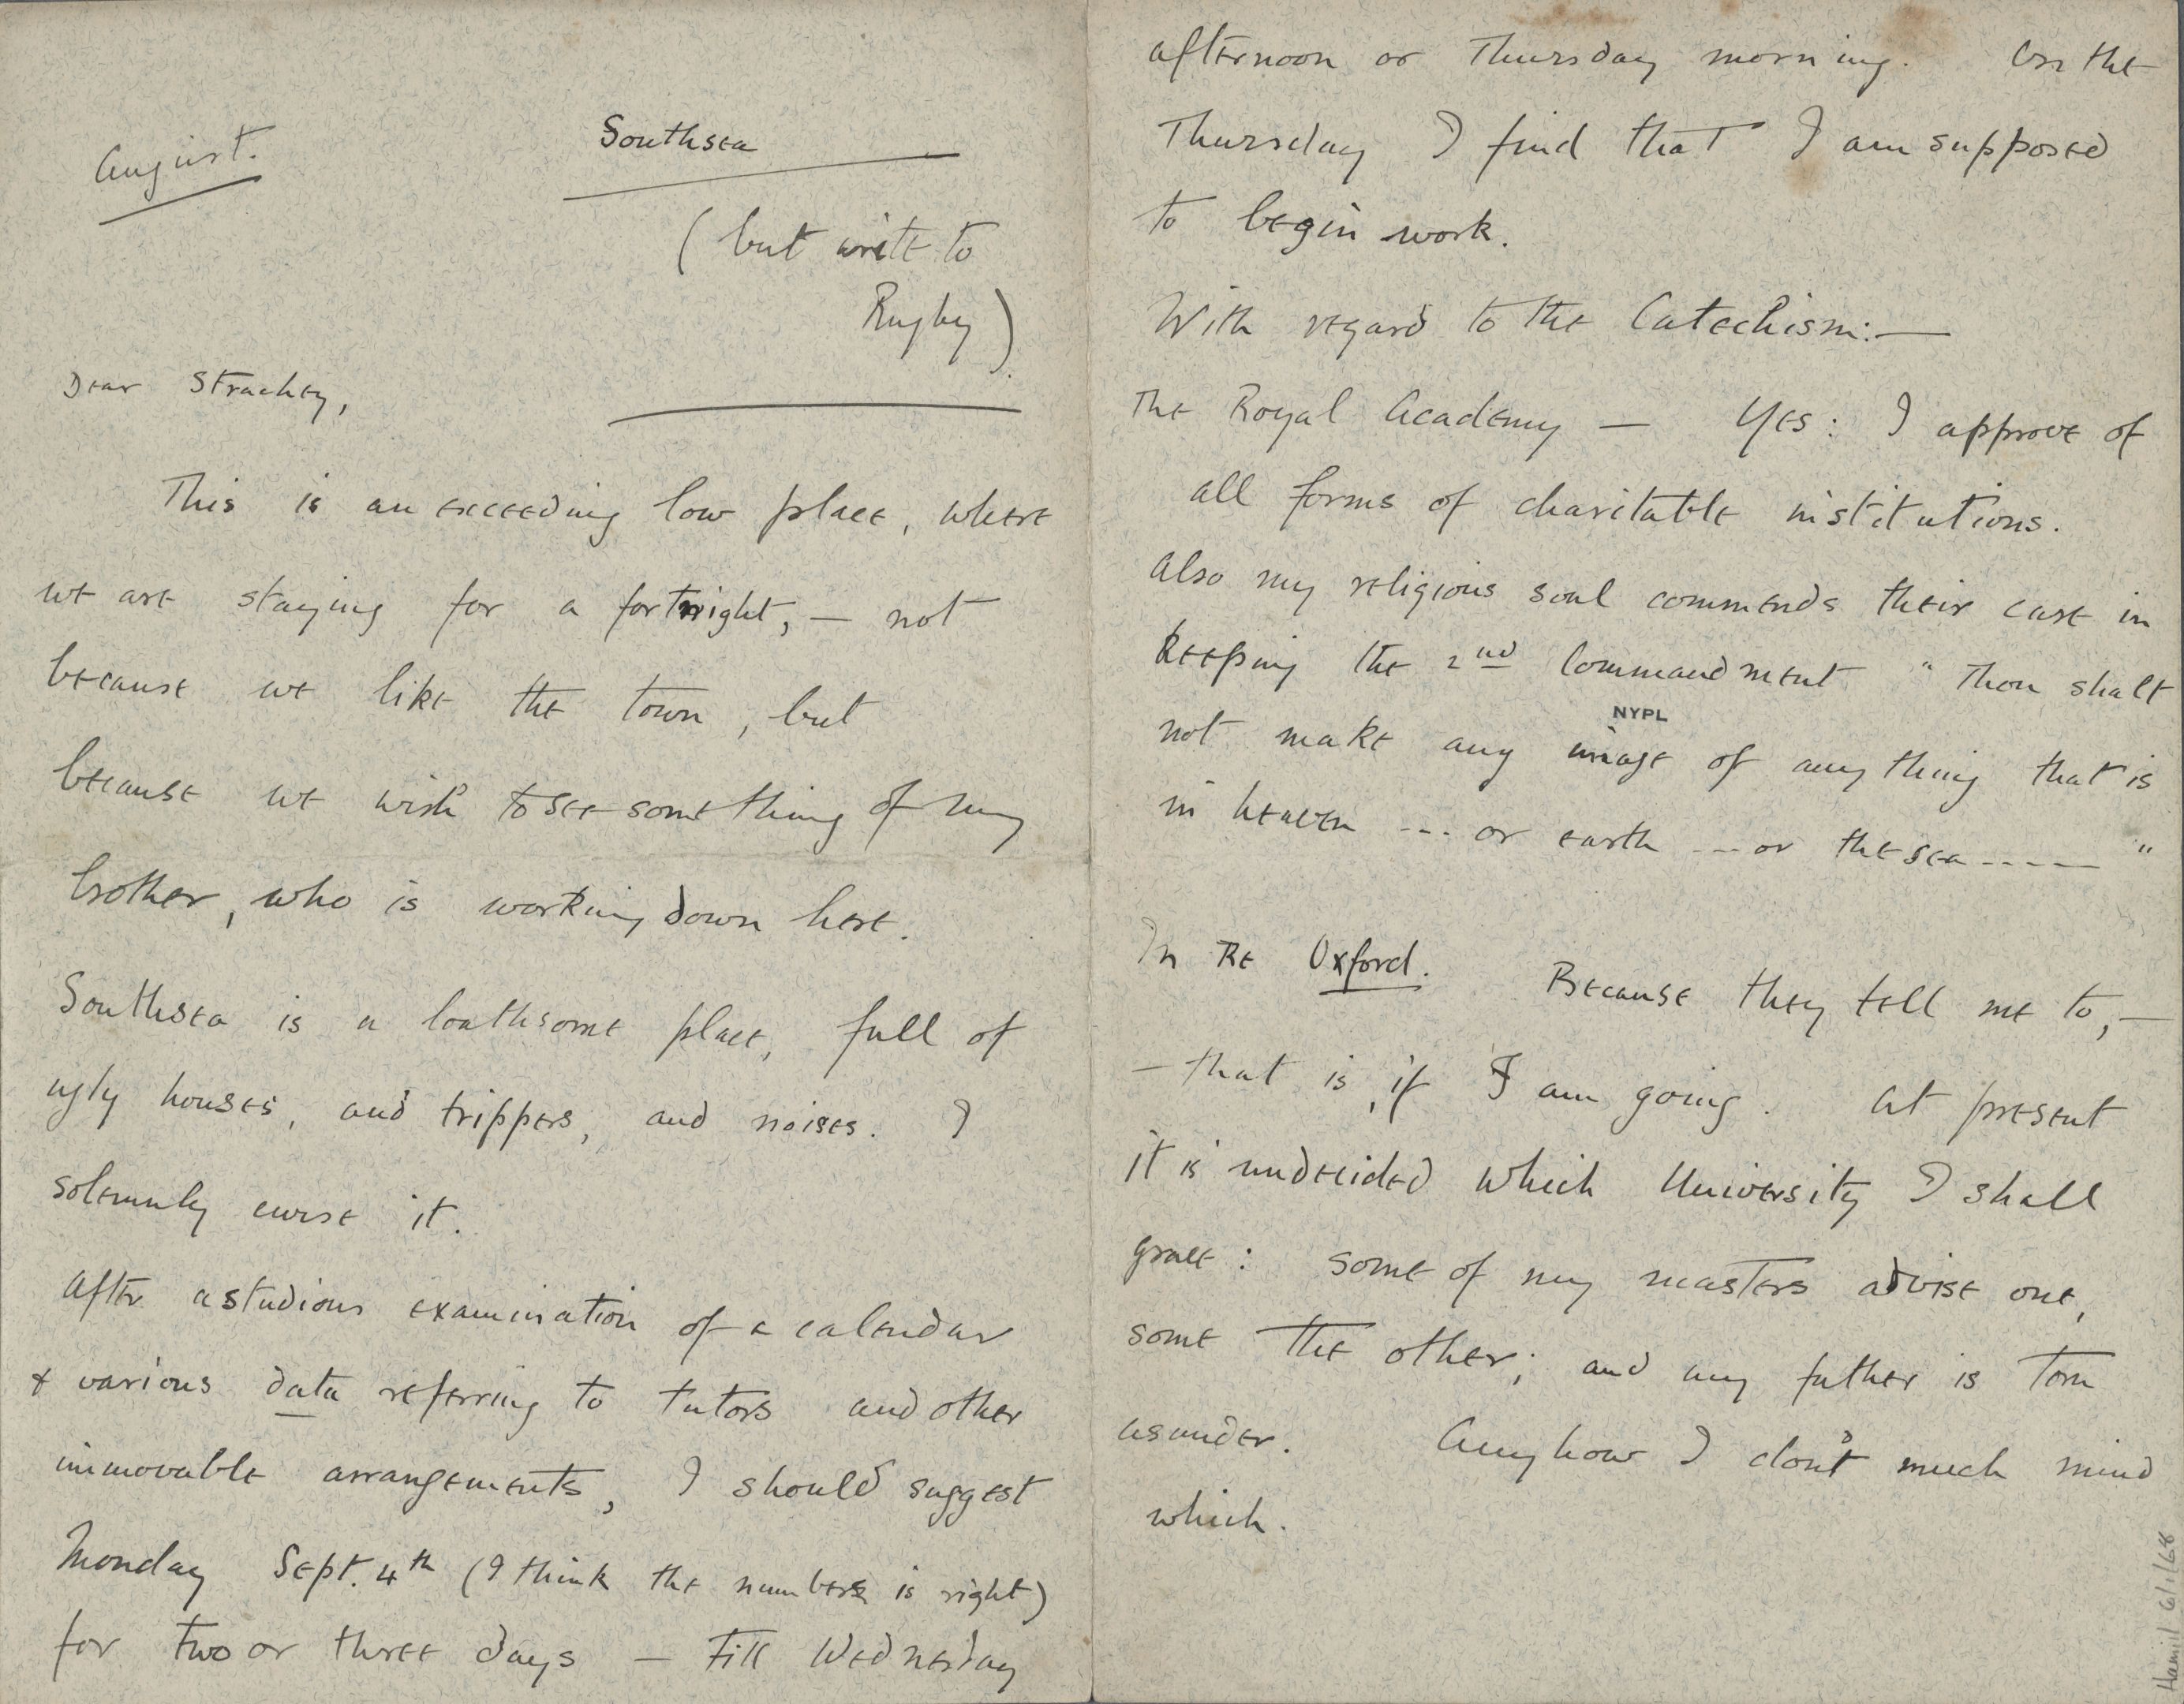 August.
Southsea
( but write to
Rugby )
Dear Strachey,
This is an exceeding low place, where
we are staying for a fortnight, — not
because we like the town, but
because we wish to see something of my
brother, who is working down here.
Southsea is a loathsome place, full of
ugly houses, and trippers, and noises. I
solemnly curse it.
After a studious examination of a calendar
& various data referring to tutors and other
immovable arrangements, I should suggest
Monday Sept. 4th (I think the number is right)
for two or three days — till Wednesday
afternoon or Thursday morning. On the
Thursday I find that I am supposed
to begin work.
With regard to the Catechism:—
The Royal Academy — Yes: I approve of
all forms of charitable institutions.
Also my religious soul commends their care in
keeping the 2nd Commandment "Thou shalt
NYPL
not make any image of anything that is
in heaven --- or earth --- or the sea ---- "
In Re Oxford. Because they tell me to, —
— that is, if I am going. At present
it is undecided which University I shall
grace: some of my masters advise one,
some the other; and my father is torn
asunder. Anyhow I don't much mind
which.
Hamil 6/1/68